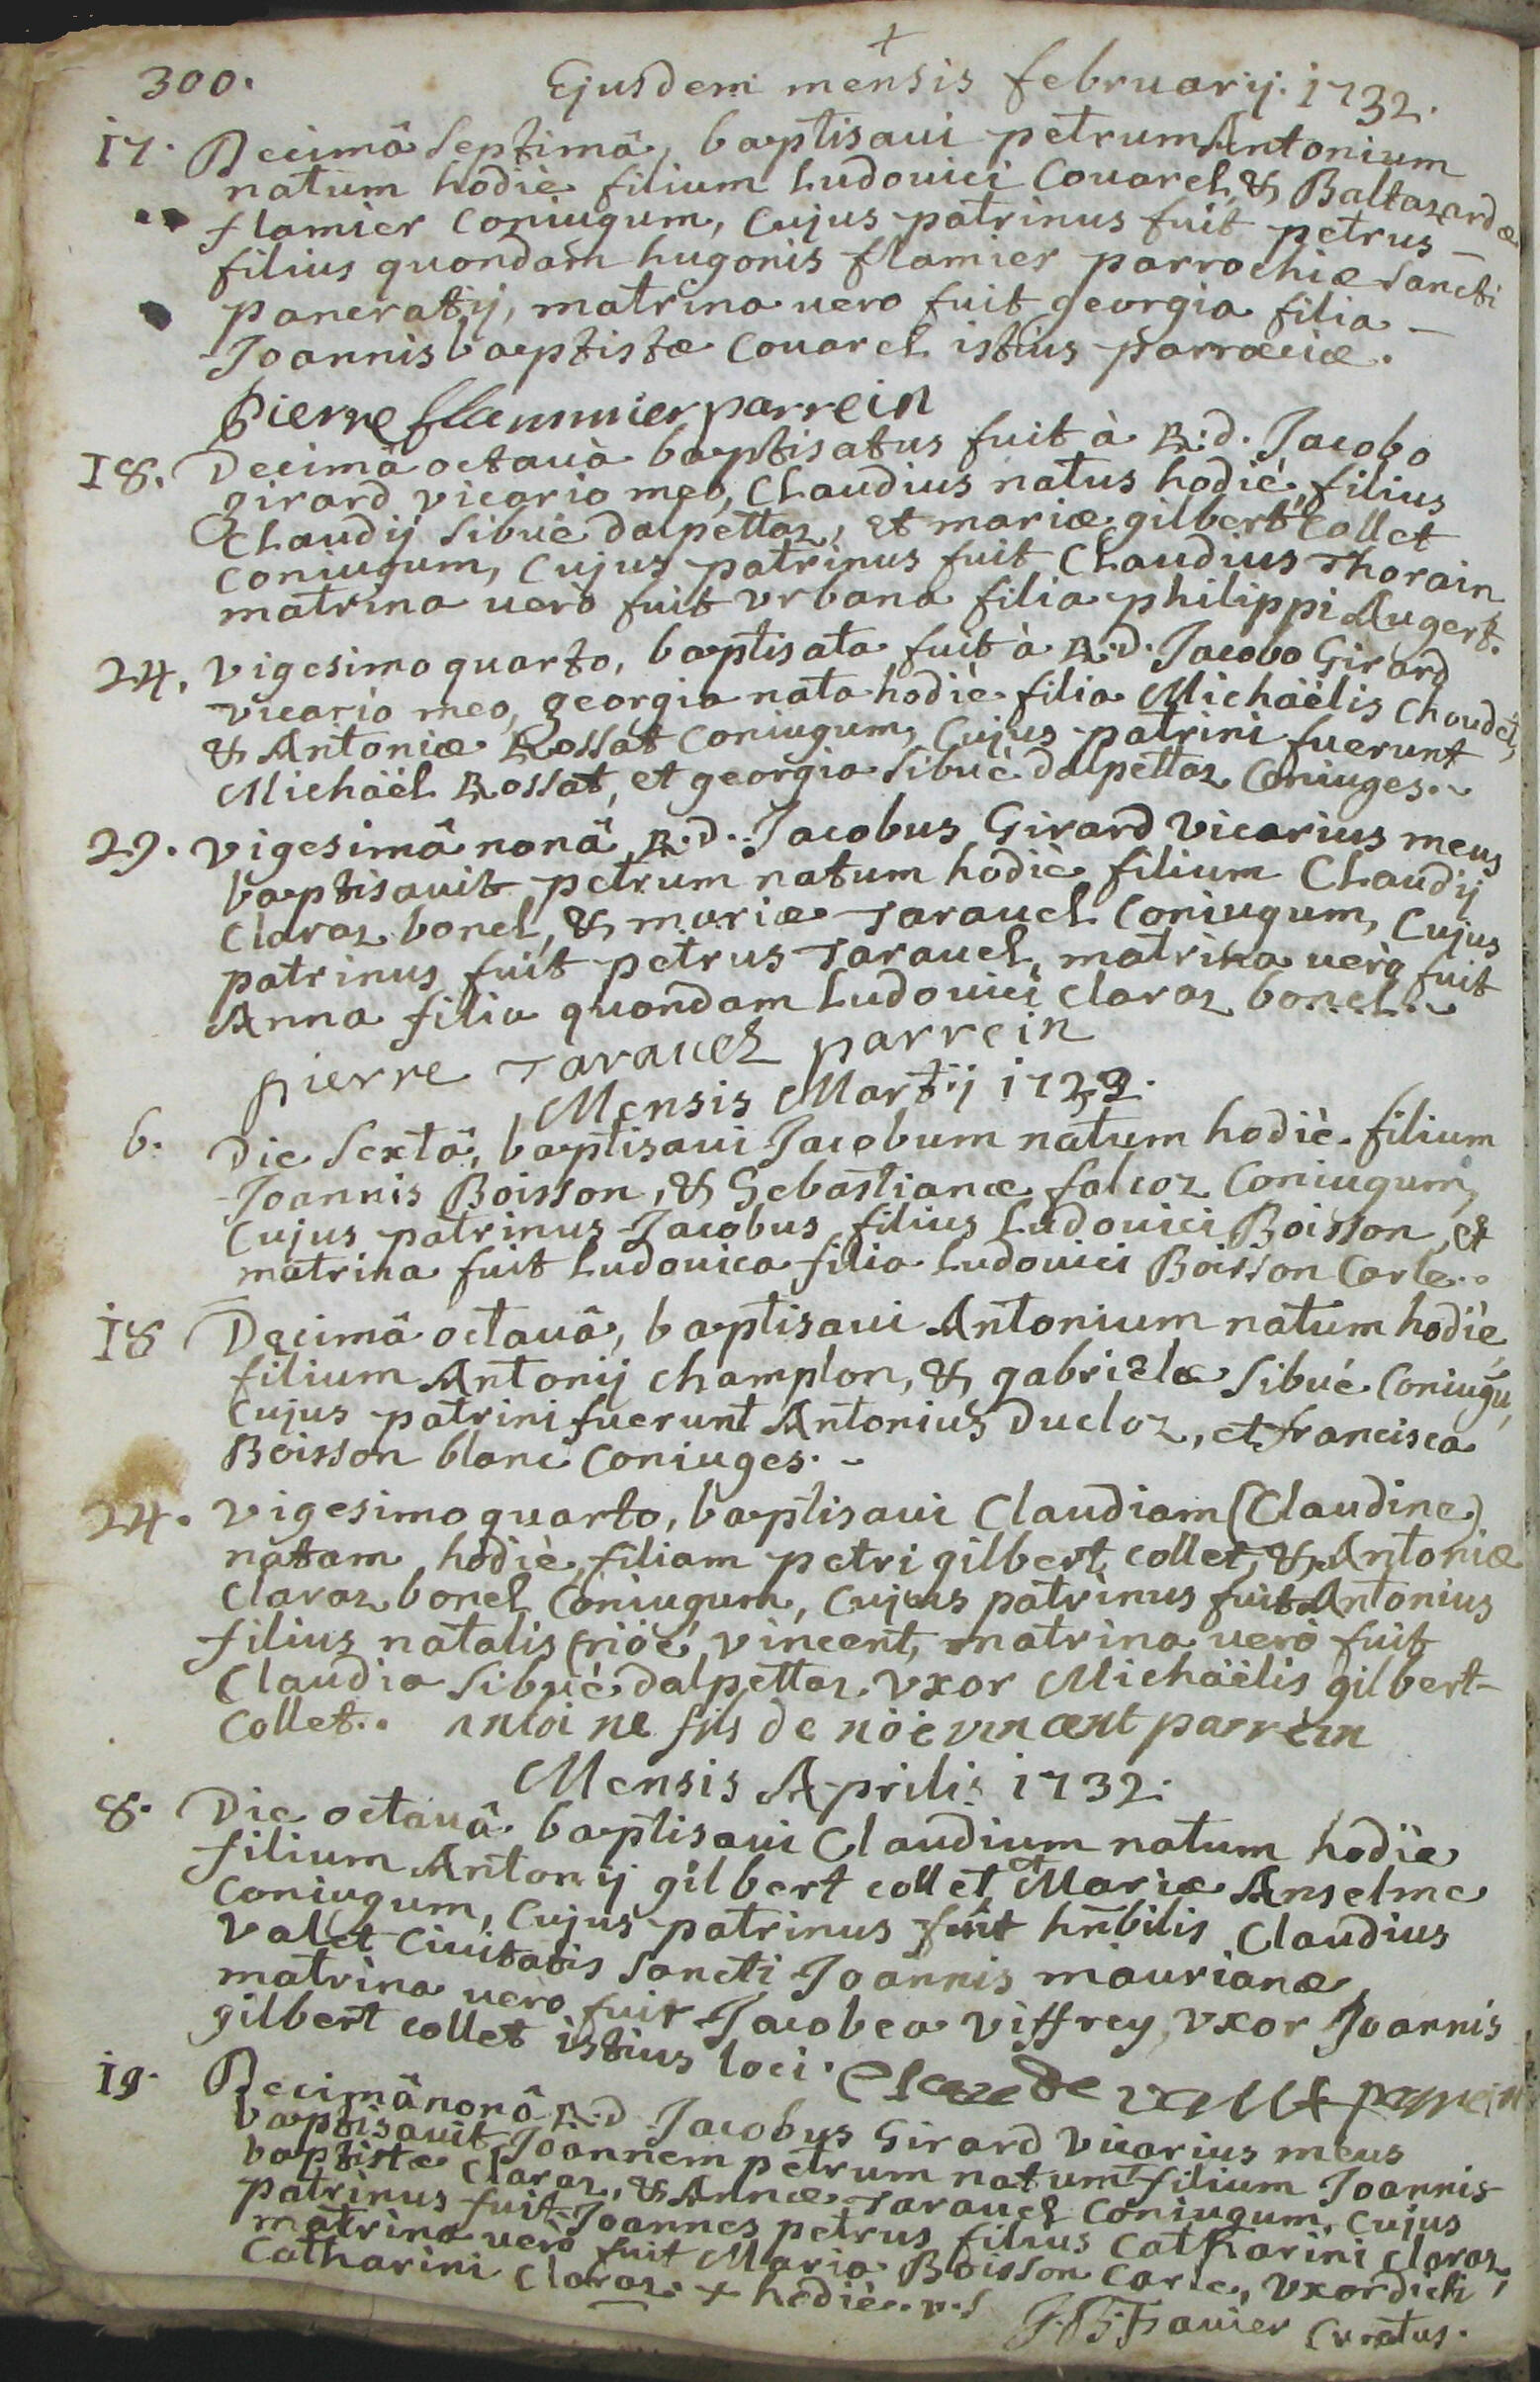 +
300. Ejusdem mensis februarij. 1732.
17. Decimâ Septimâ, baptisaui petrum Antonium
natum hodiè filium Ludouici Couarel, & Baltazardæ
flamier Coniugum, Cujus patrinus fuit petrus –
filius quondam hugonis flamier parrochiæ Sancti
pancratij, matrina uero fuit georgia filia –
Joannis baptistæ Couarel istius parrœciæ.
Pierre flammier parrein
18. Decimâ octauâ baptisatus fuit à R:d. Jacobo
girard vicario meo, Claudius natus hodiè, filius
Claudij Sibué dalpettaz, et mariæ gilbert Collet
Coniugum, Cujus patrinus fuit Claudius Thorain
matrina uerò fuit vrbana filia philippi Augert.
24. vigesimo quarto, baptisata fuit à R.d. Jacobo Girard
vicario meo, georgia nata hodiè filia Michäèlis Choudet,
& Antoniæ Rossat Coniugum, Cujus patrini fuerunt
Michäèl Rossat, et georgia Sibué dalpettaz Coniuges.~
29. vigesimâ nonâ R.d. Jacobus Girard vicarius meus
baptisauit petrum natum hodiè filium Claudij
Claraz bonel, & mariæ Tarauel Coniugum, Cujus
patrinus fuit petrus Tarauel, matrina uerò fuit
Anna filia quondam Ludouici Claraz bonel.~
pierre Tarauel parrein
Mensis Martij 1732.
6. Die Sextâ, baptisaui Jacobum natum hodiè filium
Joannis Boisson, & Sebastianæ falcoz Coniugum,
Cujus patrinus Jacobus filius Ludouici Boisson, et
matrina fuit Ludouica filia Ludouici Boisson Carle..
18 Decimâ octauâ, baptisaui Antonium natum hodiè,
filium Antonij champlon, & gabrielæ Sibué Coniugũ,
Cujus patrini fuerunt Antonius Ducloz, et francisca
Boisson blanc Coniuges.~
24. vigesimo quarto, baptisaui Claudiam (Claudine)
natam hodiè, filiam petri gilbert collet, & Antoniæ
Claraz bonel Coniugum, Cujus patrinus fuit Antonius
filius natalis (nöé) vincent, matrina uerò fuit
Claudia Sibué dalpettaz vxor Michäèlis gilbert-
Collet.. antoine fils de nöé vincent parrein
Mensis Aprilis 1732.
8. Die octauâ baptisaui Claudium natum hodie
filium Antonij gilbert collet, et Mariæ Anselme
Coniugum, Cujus patrinus fuit hñbilis Claudius
Valet Ciuitatis Sancti Joannis maurianæ,
matrina uerò fuit Jacobea Viffrey, vxor Joannis
gilbert collet istius loci. Claude valet parrein
19. Decimânonâ R.d Jacobus Girard vicarius meus
baptisauit Joannem petrum natum + filium Joannis-
baptistæ Claraz, & Annæ Tarauel Coniugum, Cujus
patrinus fuit Joannes petrus filius Catharini Claraz,
matrina uerò fuit Maria Boisson Carle, vxor dicti
Catharini Claraz. + hodiè.
J.B. Trauier Curatus.